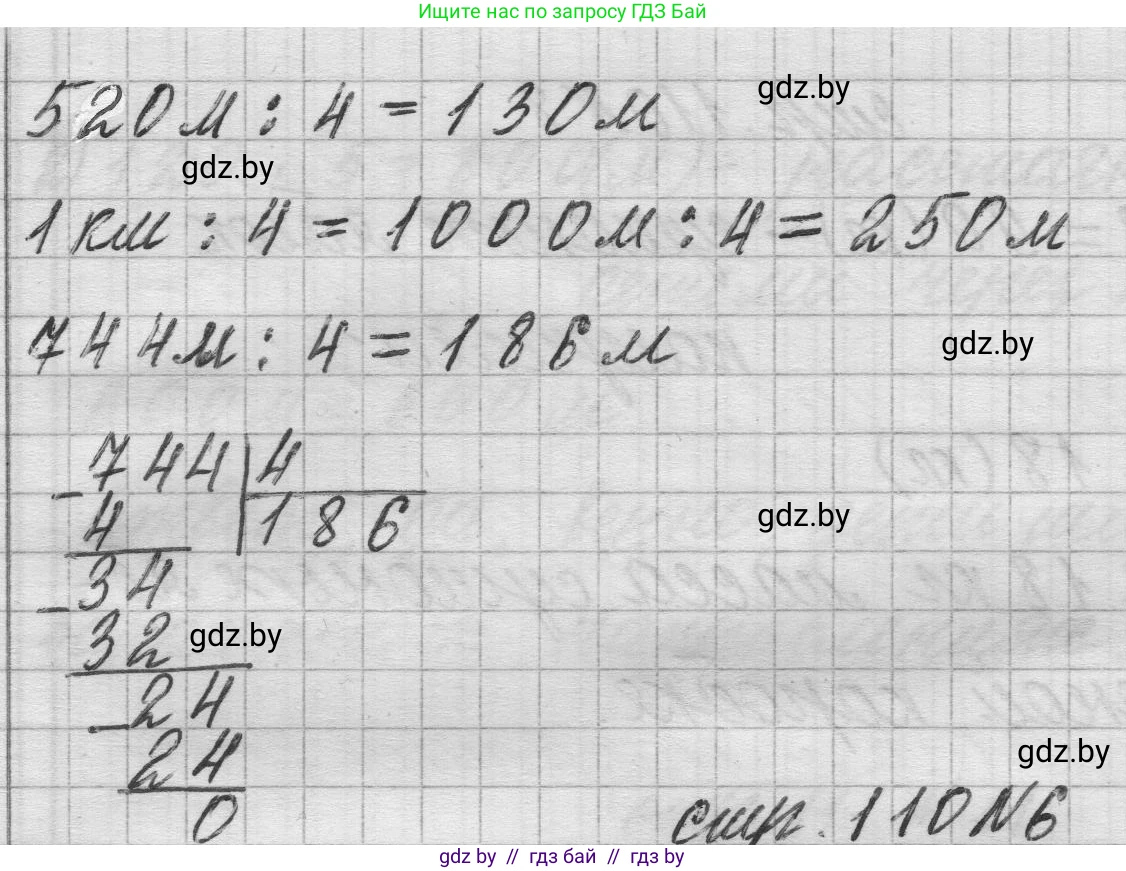 Ищите нас по запросу ГДЗ Бай
520м : 4 = 130м
gdz.by
gdz.by
1км : 4 = 1000м : 4 = 250м
744м : 4 = 186м
gdz.by
-744 | 4
4 | 186
gdz.by
-34
32
gdz.by
-24
24
gdz.by
0
стр. 110 N6
gdz.by // гдз бай // gdz.by